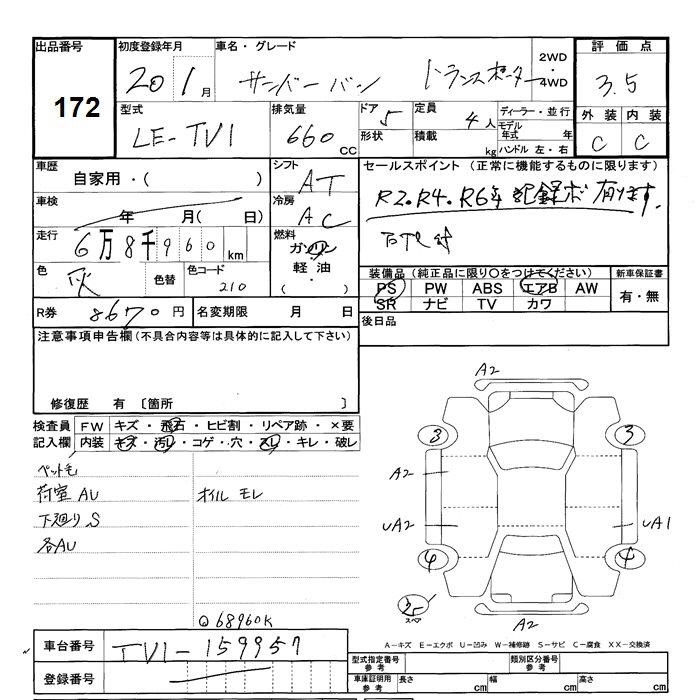 出品番号 初度登録年月 車名・グレード 2WD ・ 4WD 評価点
172
20 1月 サンバーバン トランスポーター 3.5
型式 排気量 ドア 5 定員 4人 ディーラー・並行 外装 内装
LE-TV1 660 CC 形状 積載 kg モデル年式 年 C C
ハンドル 左・右
車歴 シフト セールスポイント (正常に機能するものに限ります)
自家用・( ) AT R2.R4.R6年 記録ボ有ります.
車検 年 月( 日) 冷房 AC
走行 6万8千960km 燃料 ガソリン
軽油・( )
色 灰 色替 色コード 210
装備品 (純正品に限り〇をつけてください) 新車保証書
PS PW ABS エアB AW 有・無
SR ナビ TV カワ
R券 8670円 名変期限 月 日 後日品
注意事項申告欄(不具合内容等は具体的に記入して下さい)
修復歴 有 〔箇所 〕
検査員 FW キズ・飛石・ヒビ割・リペア跡・×要
記入欄 内装 キズ・汚レ・コゲ・穴・スレ・キレ・破レ
ペット毛
荷室 AU オイル モレ
下廻り S
各AU
A2
3 3
A2
UA2 UA1
4 4
スペア
A2
Q68960K
A-キズ E-エクボ U-凹み W-補修跡 S-サビ C-腐食 XX-交換済
車台番号 TV1-159957
型式指定番号 参考 類別区分番号 参考
登録番号
車庫証明用 参考 長さ cm 幅 cm 高さ cm